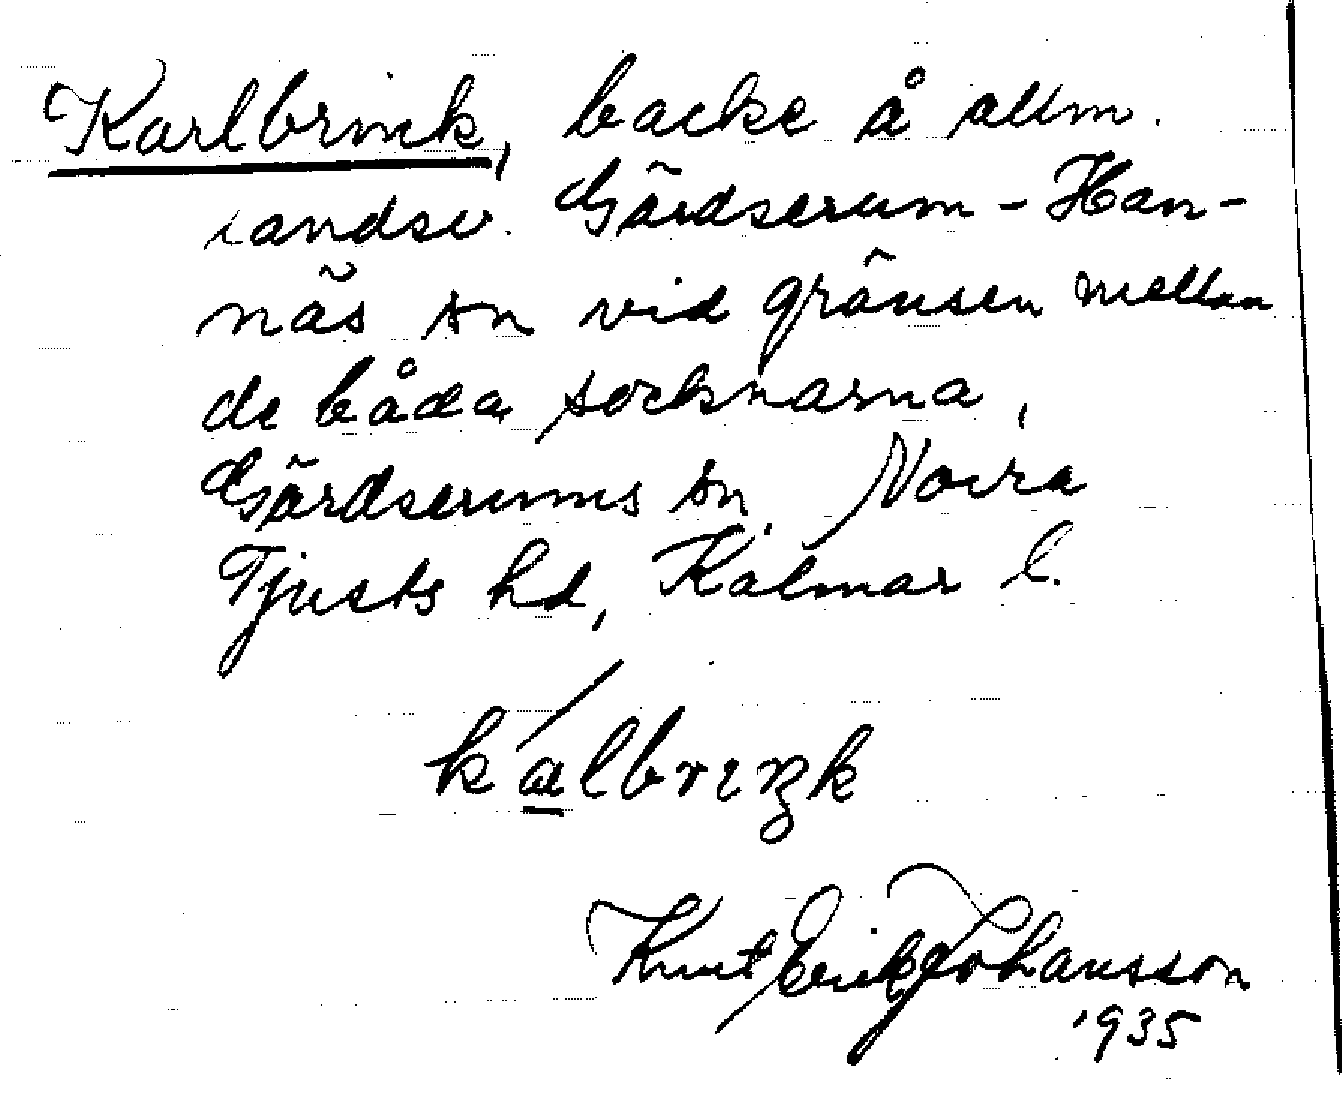 Karlbrink, backe å allm.
landsv. Gärdserum - Han-
näs sn vid gränsen mellan
de båda socknarna,
Gärdserums sn, Norra
Tjusts hd, Kalmar l.
kálbrıŋk
Knut Erik Johansson
1935